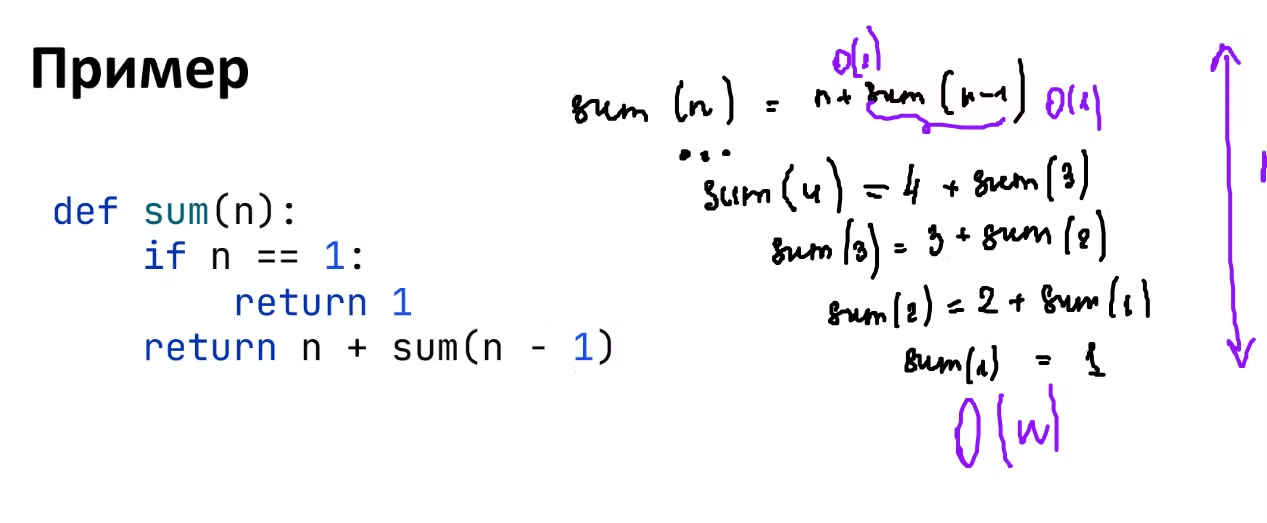 Пример
def sum(n):
if n == 1:
return 1
return n + sum(n - 1)
O(1)
sum (n) = n + sum (n-1) O(1)
...
sum(4) = 4 + sum(3)
sum(3) = 3 + sum(2)
sum(2) = 2 + sum(1)
sum(1) = 1
O(n)